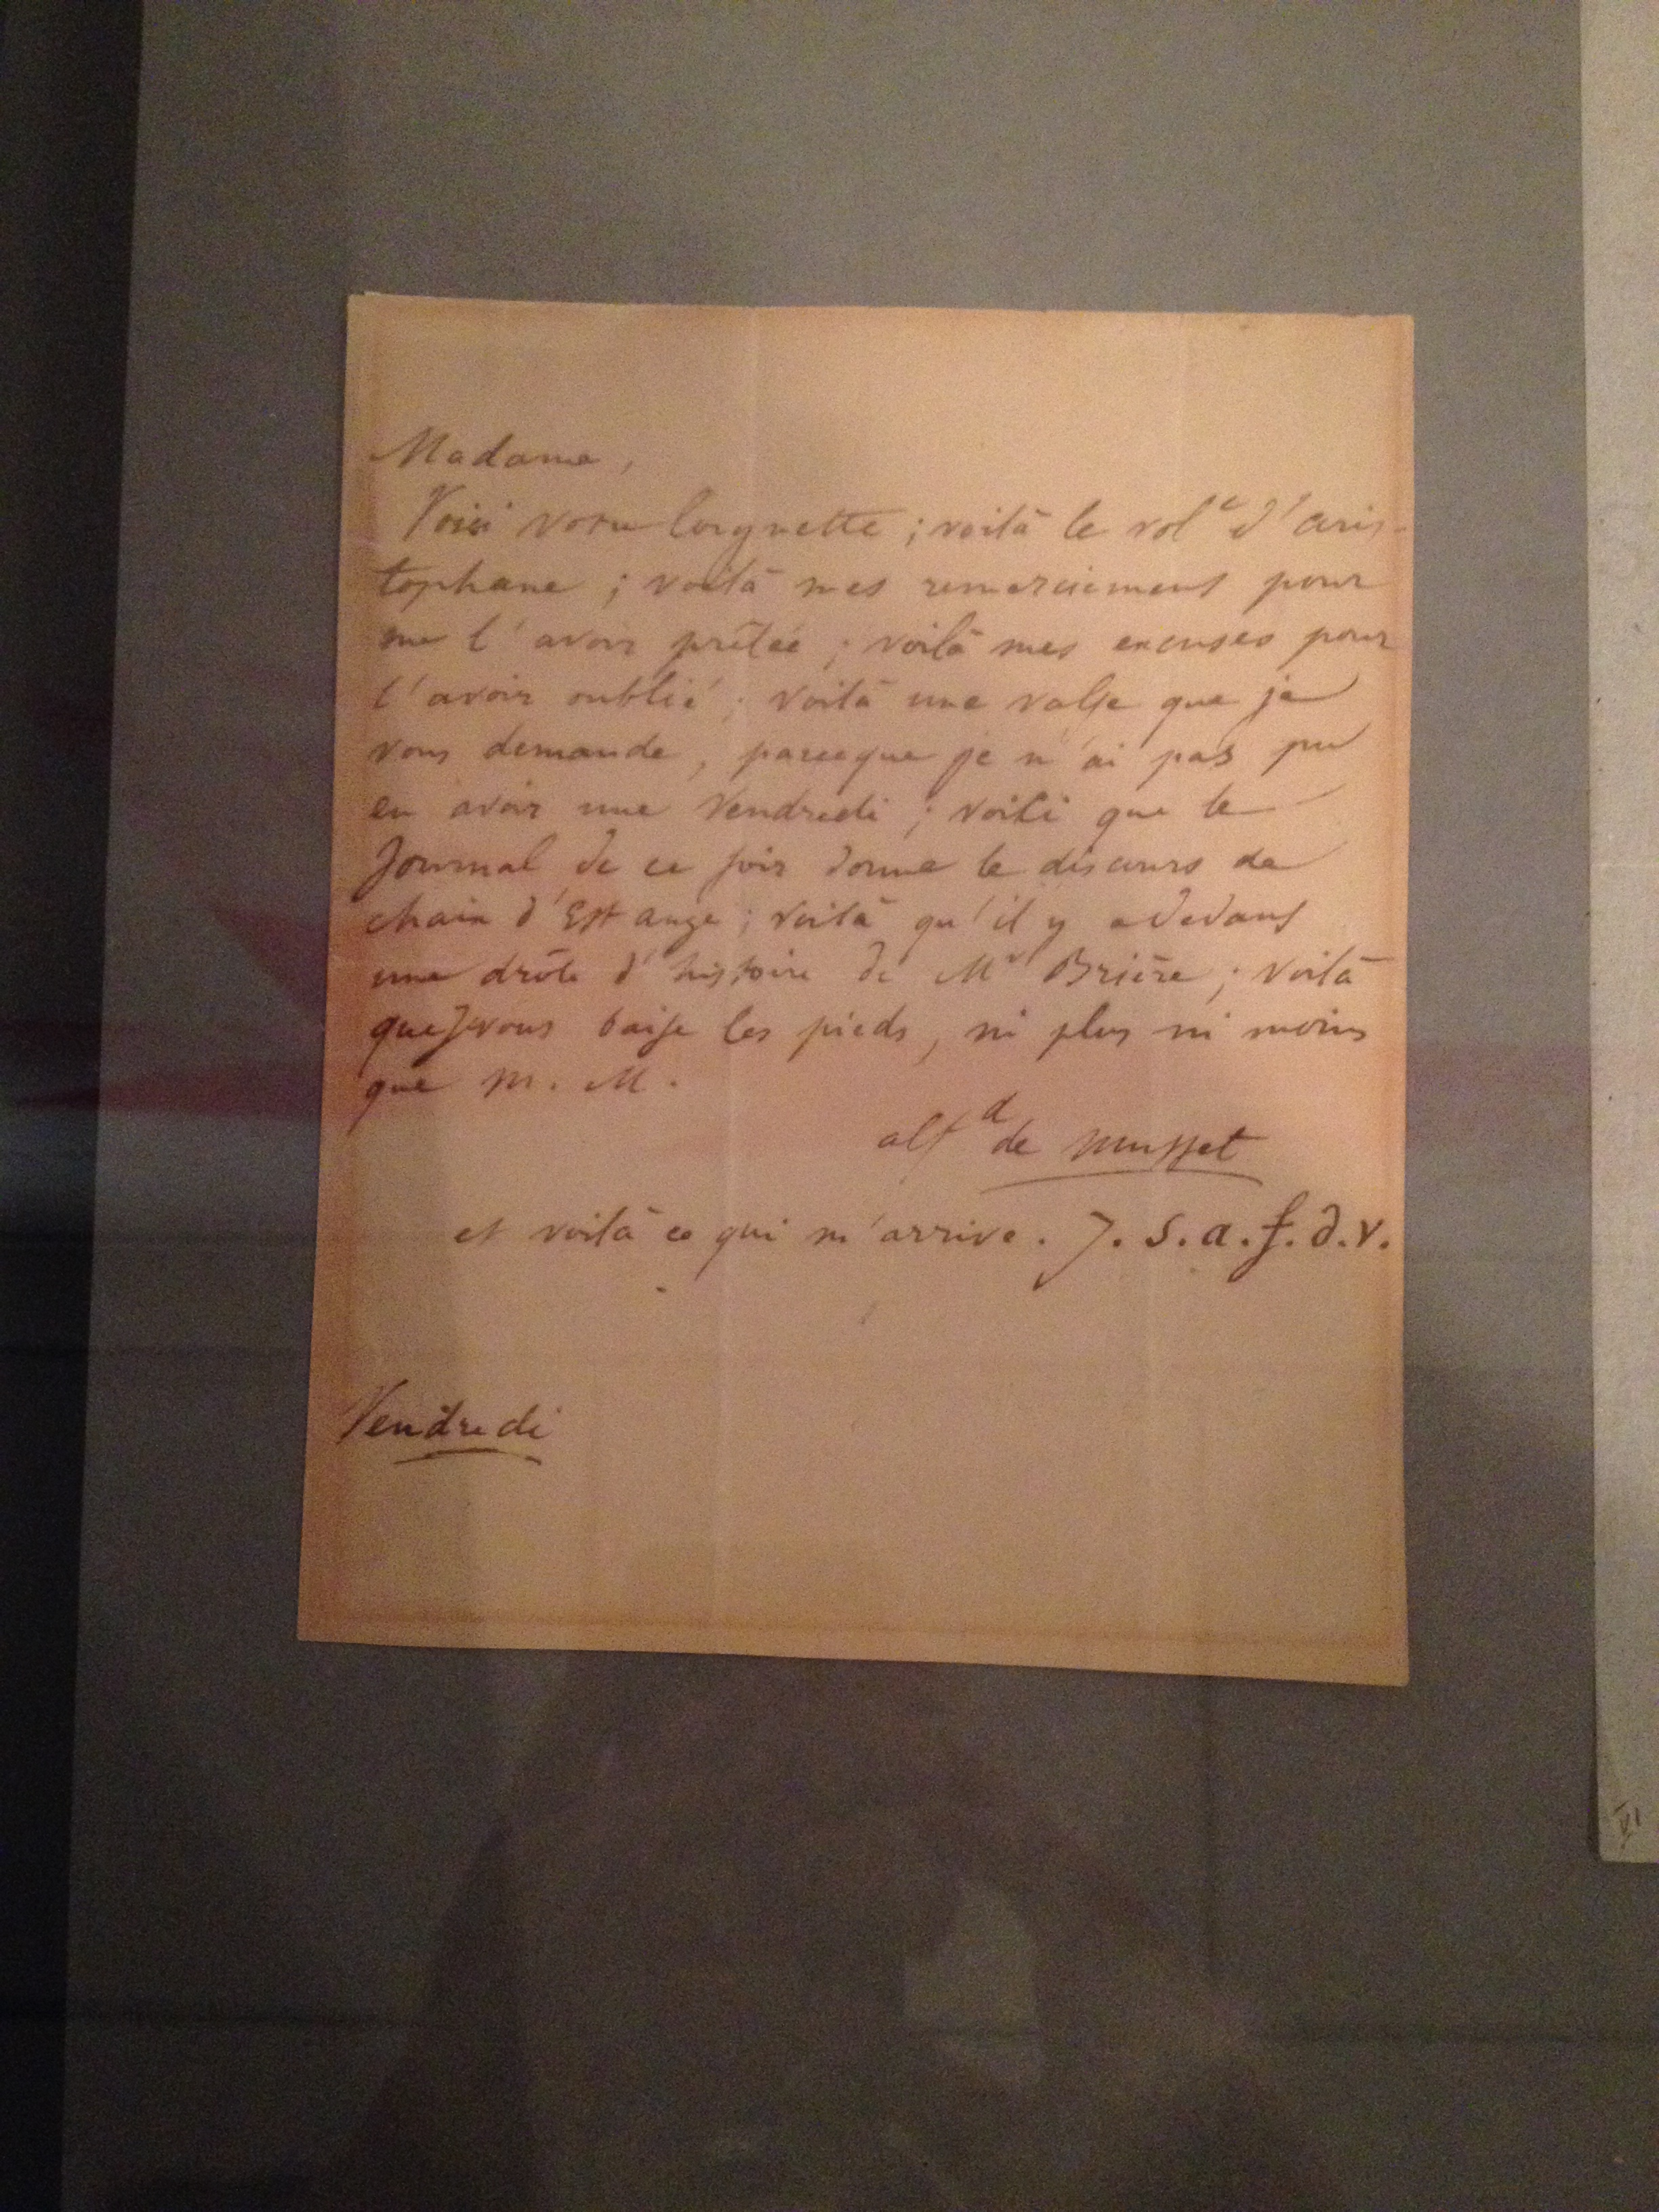 Madame,
Voici votre lorgnette ; voilà le vol^e d'aris-
tophane ; voilà mes remerciements pour
me l'avoir prêtée ; voilà mes excuses pour
l'avoir oublié ; voilà une valse que je
vous demande, parceque je n'ai pas pu
en avoir une Vendredi ; voilà que le
Journal de ce soir donne le discours de
chaix d'Est ange ; voilà qu'il y a dedans
une drôle d'histoire de M^r Brière ; voilà
que je vous baise les pieds, ni plus ni moins
que m. M.
alf^d de Musset
et voilà ce qui m'arrive. J. s. a. f. d. v.
Vendredi
VI